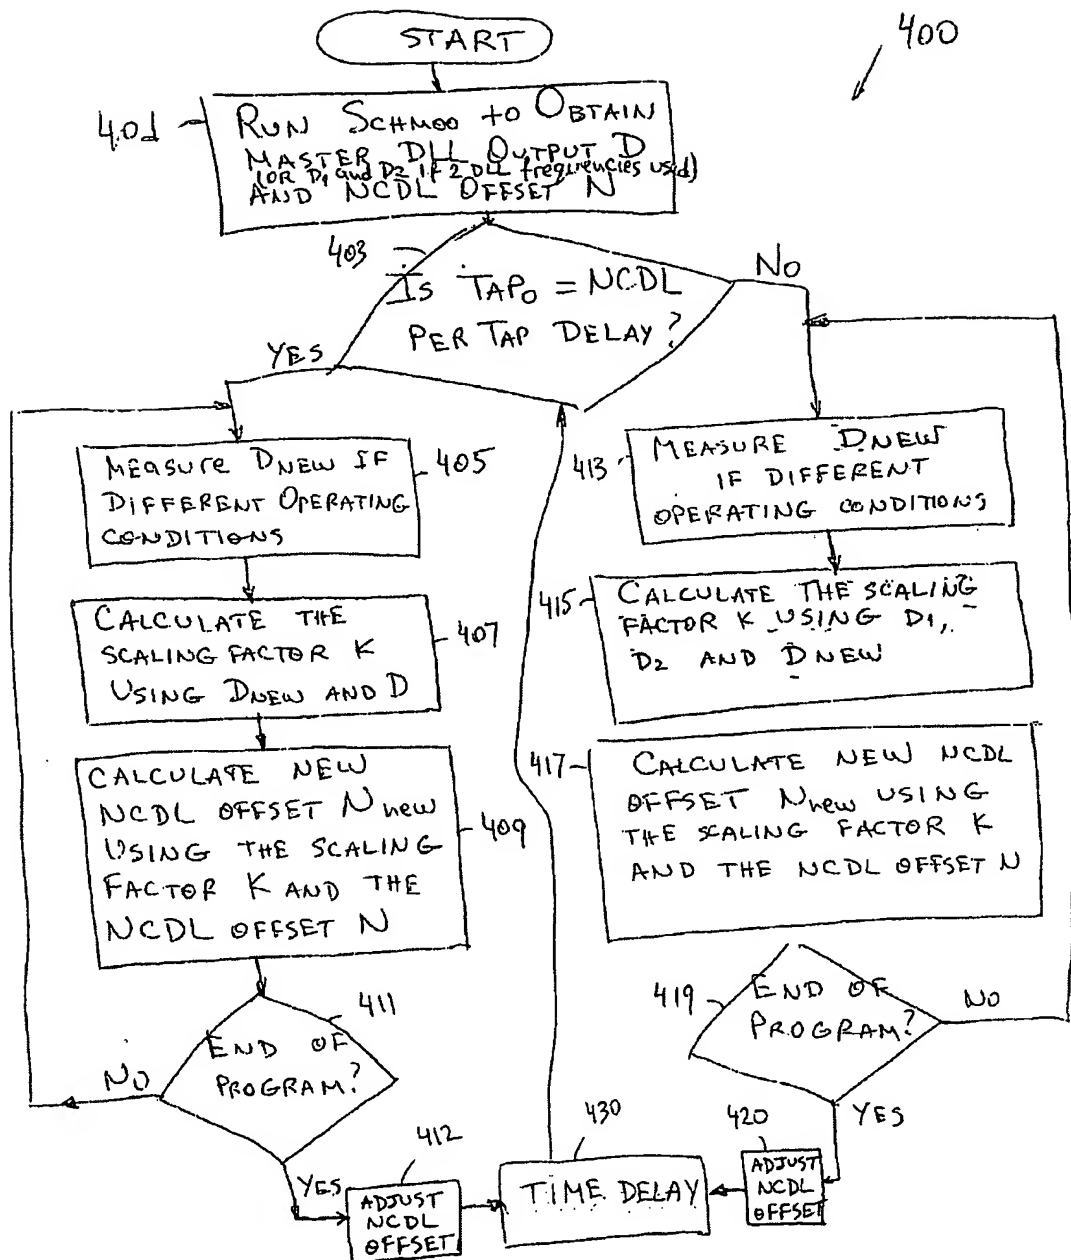 START
400
401
RUN SCHMOO to OBTAIN
MASTER DLL OUTPUT D
(OR D1 and D2 if 2 DLL frequencies used)
AND NCDL OFFSET N
403
Is TAP0 = NCDL
PER TAP DELAY?
YES
NO
MEASURE DNEW IF
DIFFERENT OPERATING
CONDITIONS
405
CALCULATE THE
SCALING FACTOR K
USING DNEW AND D
407
CALCULATE NEW
NCDL OFFSET Nnew
USING THE SCALING
FACTOR K AND THE
NCDL OFFSET N
409
411
END OF
PROGRAM?
NO
YES
412
ADJUST
NCDL
OFFSET
413
MEASURE DNEW
IF DIFFERENT
OPERATING CONDITIONS
415
CALCULATE THE SCALING
FACTOR K USING D1,
D2 AND DNEW
417
CALCULATE NEW NCDL
OFFSET Nnew USING
THE SCALING FACTOR K
AND THE NCDL OFFSET N
419
END OF
PROGRAM?
NO
YES
420
ADJUST
NCDL
OFFSET
430
TIME DELAY